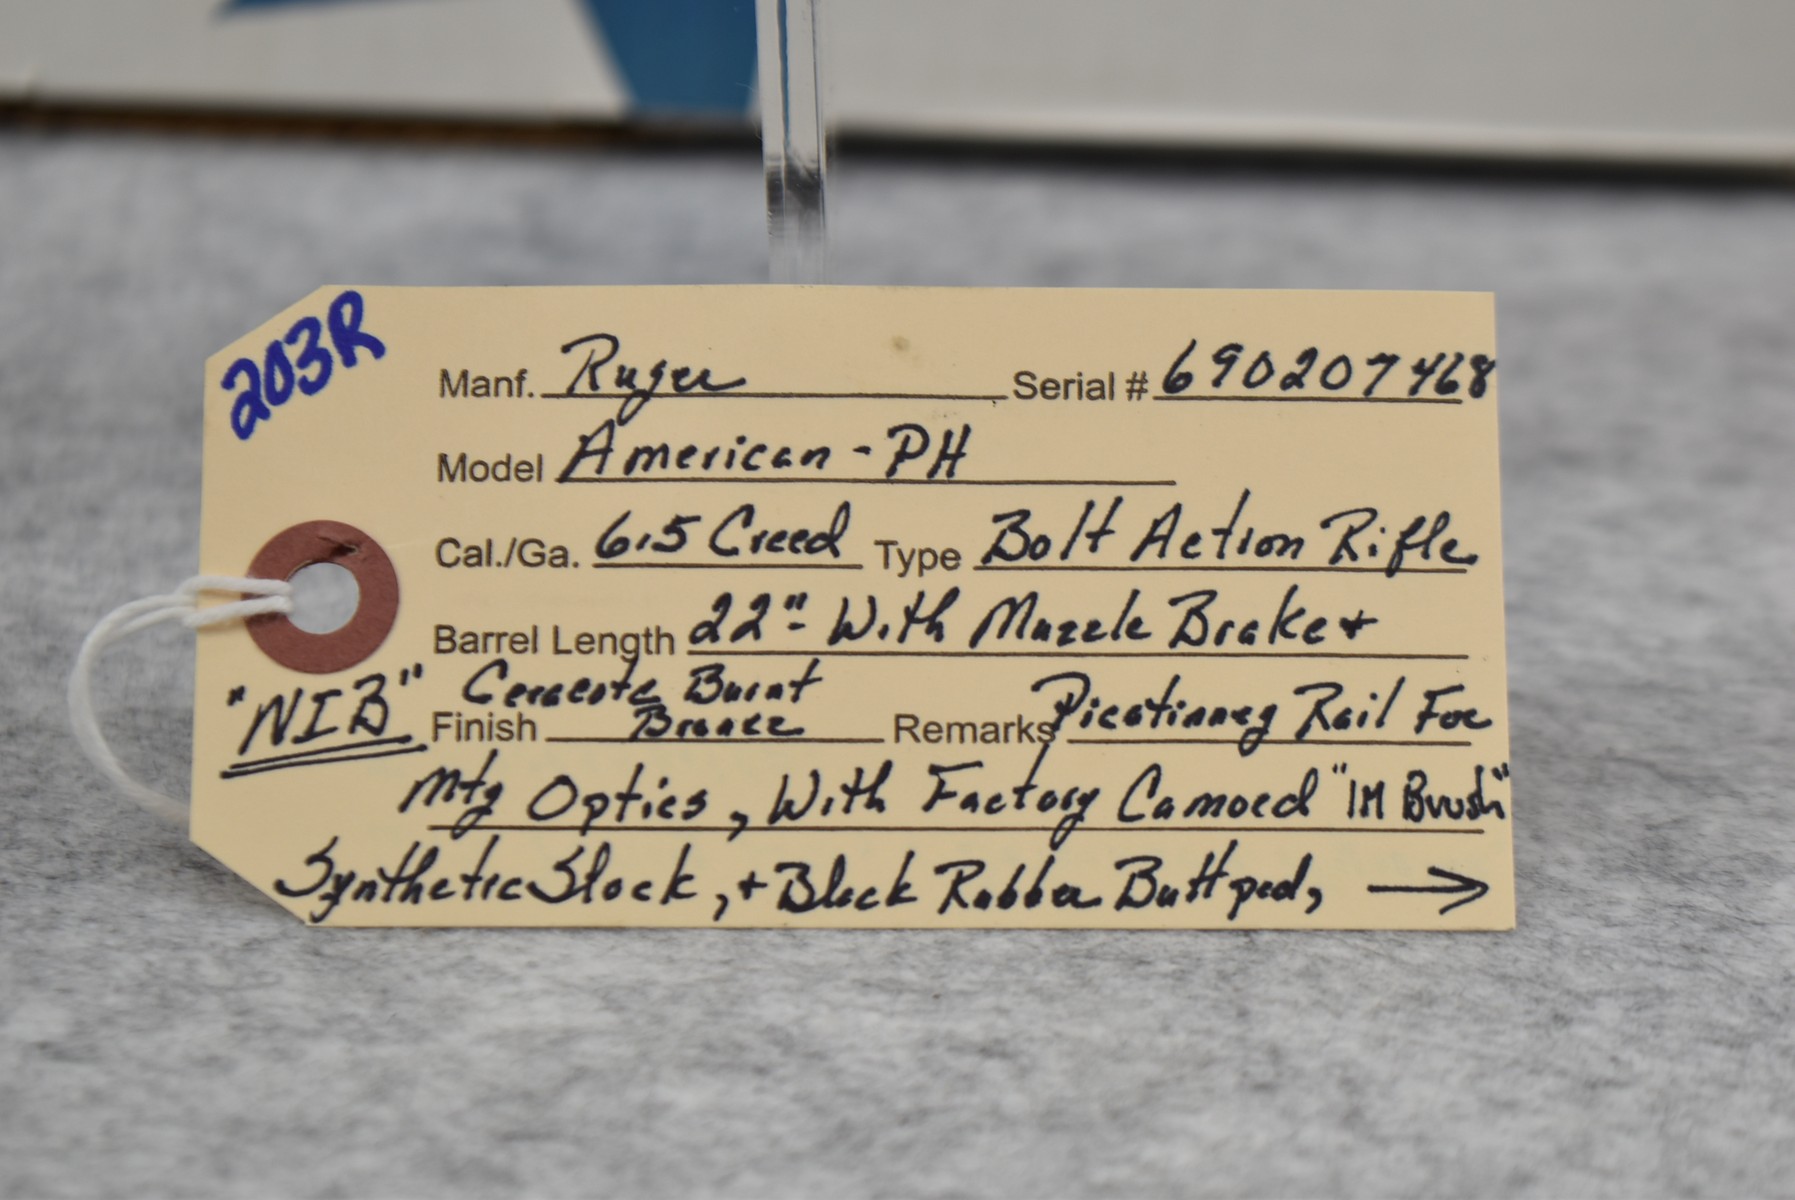 203R
Manf. Ruger Serial # 690207468
Model American - PH
Cal./Ga. 6.5 Creed Type Bolt Action Rifle
Barrel Length 22" - With Muzzle Brake +
"NIB" Finish Cerecote Burnt Bronze Remarks Picatinney Rail For
Mtg Optics, With Factory Camoed "IM Brush"
Synthetic Stock, + Black Rubber Butt pad, →